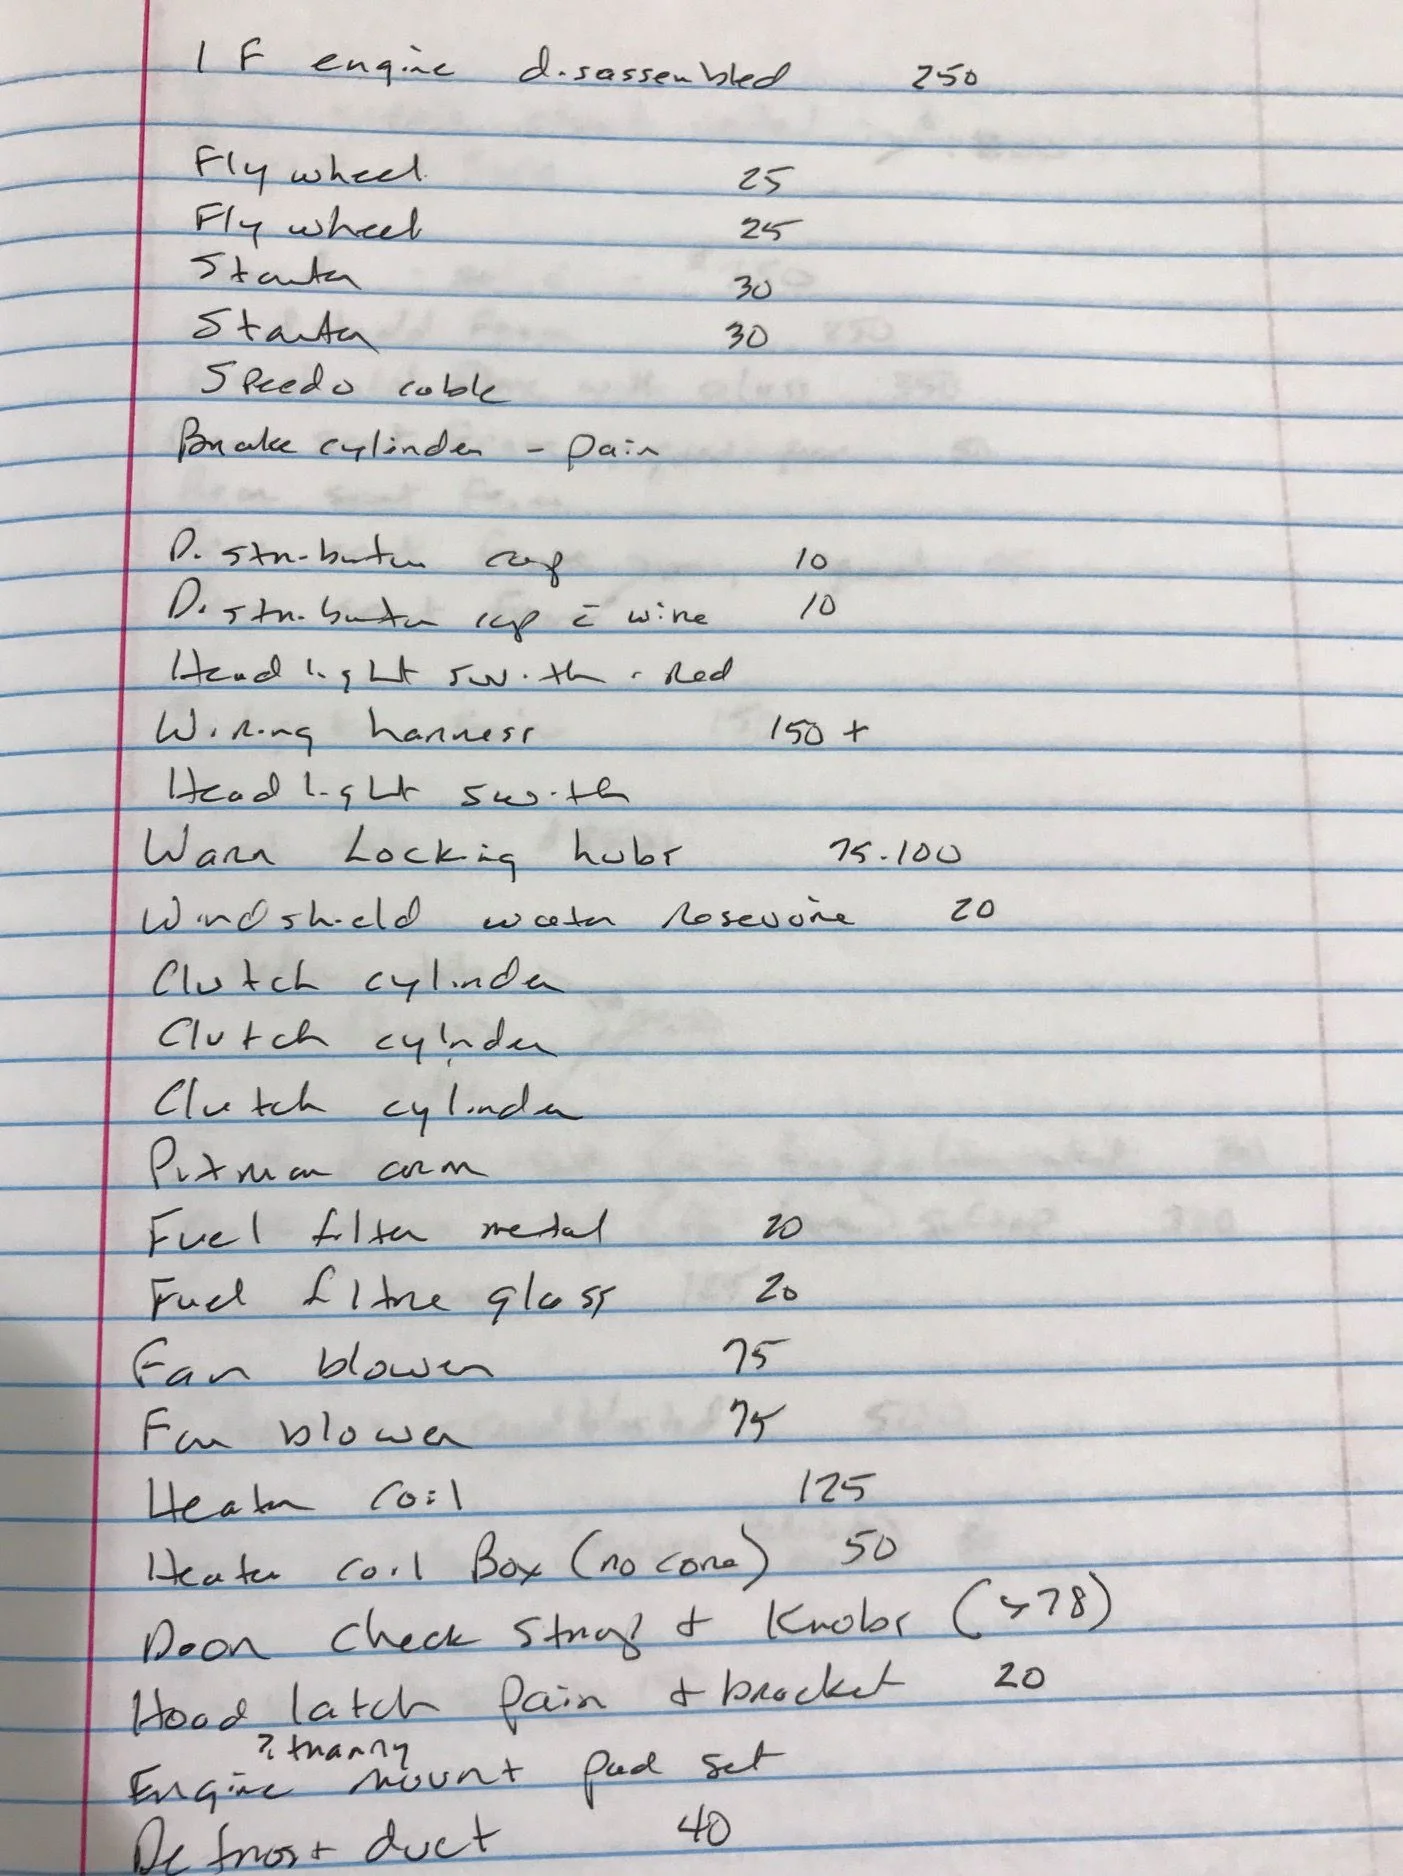 1 F engine disassembled 250
Fly wheel 25
Fly wheel 25
Starter 30
Starter 30
Speedo cable
Brake cylinder - pair
Distributer cap 10
Distributer cap c̄ wire 10
Headlight switch - Red
Wiring harness 150 +
Headlight switch
Warn Locking hubs 75-100
Windshield water resevoire 20
Clutch cylinder
Clutch cylnder
Clutch cylinder
Pitman arm
Fuel filter metal 20
Fuel filtre glass 20
Fan blower 75
Fan blower 75
Heater coil 125
Heater coil Box (no core) 50
Door check strap + Knobs ( 78)
Hood latch pair + bracket 20
? tranny
Engine mount pad set
Defrost duct 40